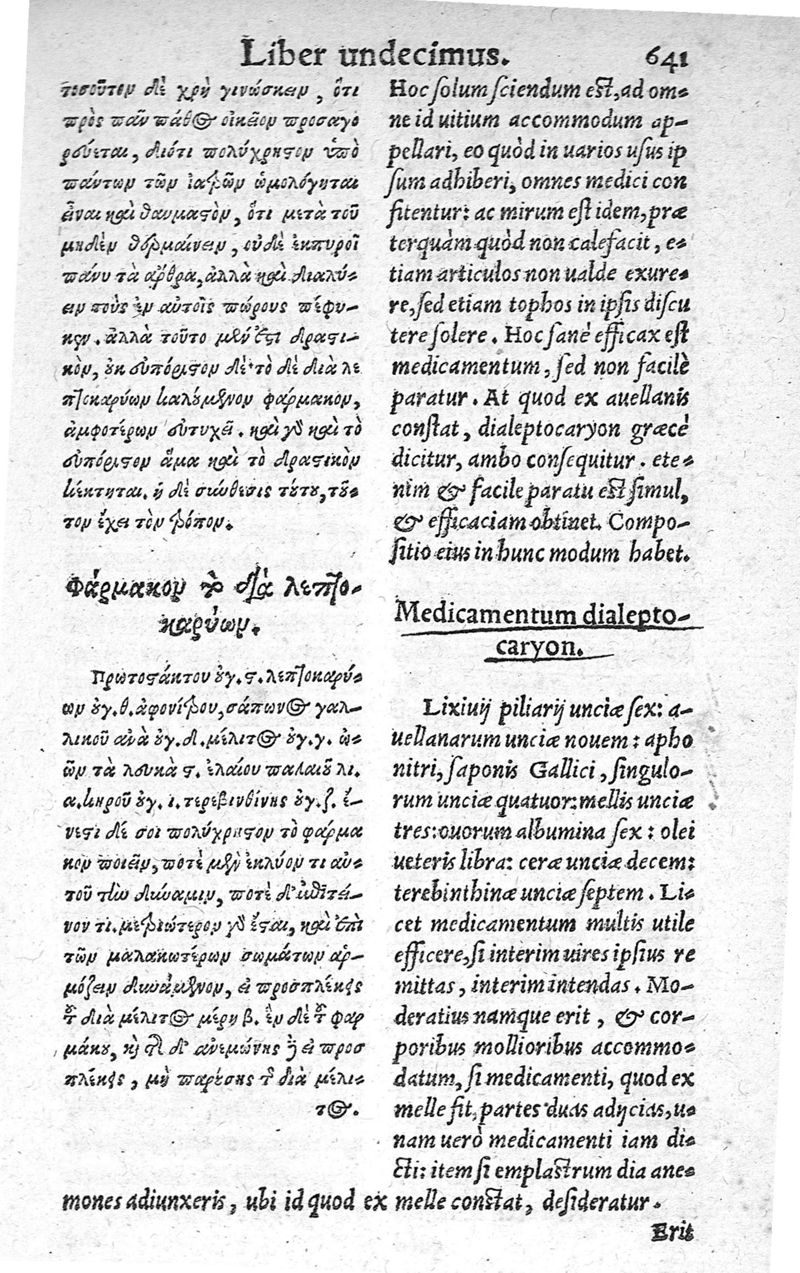 Liber undecimus. 641
τοσοῦτον δὲ χρὴ γινώσκειν, ὅτι
πρὸς πᾶν πάθος οἰκεῖον προσαγο
ρεύεται, διότι πολύχρηστον ὑπὸ
πάντων τῶν ἰατρῶν ὡμολόγηται
εἶναι καὶ θαυμαστὸν, ὅτι μετὰ τοῦ
μηδὲν θερμαίνειν, οὐδὲ ἐκπυροῖ
πάνυ τὰ ἄρθρα, ἀλλὰ καὶ διαλύ-
ειν τοὺς ἐν αὐτοῖς πώρους πέφυ-
κεν. ἀλλὰ τοῦτο μὲν ἐστὶ δραστι-
κὸν, οὐκ εὐπόριστον δέ· τὸ δὲ διὰ λε
πτοκαρύων καλούμενον φάρμακον,
ἀμφοτέρων εὐτυχεῖ. καὶ γὸ καὶ τὸ
εὐπόριστον ἅμα καὶ τὸ δραστικὸν
κέκτηται. ἡ δὲ σύνθεσις τούτου, τοῦ-
τον ἔχει τὸν τρόπον.
Φάρμακον τὸ διὰ λεπτο-
καρύων.
Πρωτοστάκτου ουγ. ϛ. λεπτοκαρύ-
ων ουγ. θ. ἀφονίτρου, σάπωνος γαλ-
λικοῦ ἀνὰ ουγ. δ. μέλιτος ουγ. γ. ὠ-
ῶν τὰ λευκὰ ϛ. ἐλαίου παλαιοῦ λι.
α. κηροῦ ουγ. ι. τερεβινθίνης ουγ. ζ. ἔ-
νεστι δέ σοι πολύχρηστον τὸ φάρμα
κον ποιεῖν, ποτὲ μὲν ἐκλύον τι αὐ-
τοῦ τὴν δύναμιν, ποτὲ δ' ἐπιτεί-
νον τι. μετριώτερον γὸ ἔσται, καὶ ἐπὶ
τῶν μαλακωτέρων σωμάτων ἁρ-
μόζειν δυνάμενον, εἰ προσπλέκεις
τοῦ διὰ μέλιτος μέρη β. ἐν δὲ τοῦ φαρ
μάκου, καὶ τῆς δι' ἀνεμώνης ἢ εἰ προσ
πλέκεις, μὴ παρέσης τοῦ διὰ μέλι-
τος.
Hoc solum sciendum est, ad om-
ne id uitium accommodum ap-
pellari, eo quòd in uarios usus ip
sum adhiberi, omnes medici con
fitentur: ac mirum est idem, præ
terquàm quòd non calefacit, e-
tiam articulos non ualde exure-
re, sed etiam tophos in ipsis discu
tere solere. Hoc sanè efficax est
medicamentum, sed non facilè
paratur. At quod ex auellanis
constat, dialeptocaryon græcè
dicitur, ambo consequitur. ete-
nim & facile paratu est simul,
& efficaciam obtinet. Compo-
sitio eius in hunc modum habet.
Medicamentum dialepto-
caryon.
Lixiuij piliarij unciæ sex: a-
uellanarum unciæ nouem: apho
nitri, saponis Gallici, singulo-
rum unciæ quatuor: mellis unciæ
tres: ouorum albumina sex: olei
ueteris libra: ceræ unciæ decem:
terebinthinæ unciæ septem. Li-
cet medicamentum multis utile
efficere, si interim uires ipsius re
mittas, interim intendas. Mo-
deratius namque erit, & cor-
poribus mollioribus accommo-
datum, si medicamenti, quod ex
melle fit, partes duas adijcias, u-
nam uerò medicamenti iam di-
cti: item si emplastrum dia ane-
mones adiunxeris, ubi id quod ex melle constat, desideratur.
Erit